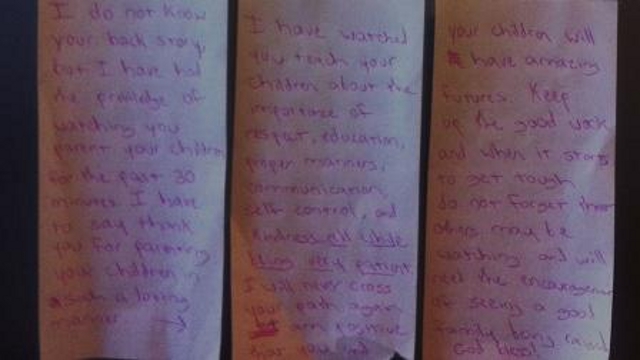 I do not know
your back story,
but I have had
the privilege of
watching you
parent your children
for the past 30
minutes. I have
to say thank
you for parenting
your children in
such a loving
manner →
I have watched
you teach your
children about the
importance of
respect, education,
proper manners,
communication,
self control, and
kindness all while
being very patient.
I will never cross
your path again
but am positive
that you and
your children will
have amazing
futures. Keep
up the good work
and when it starts
to get tough
do not forget that
others may be
watching and will
need the encouragement
of seeing a good
family being raised.
God bless!